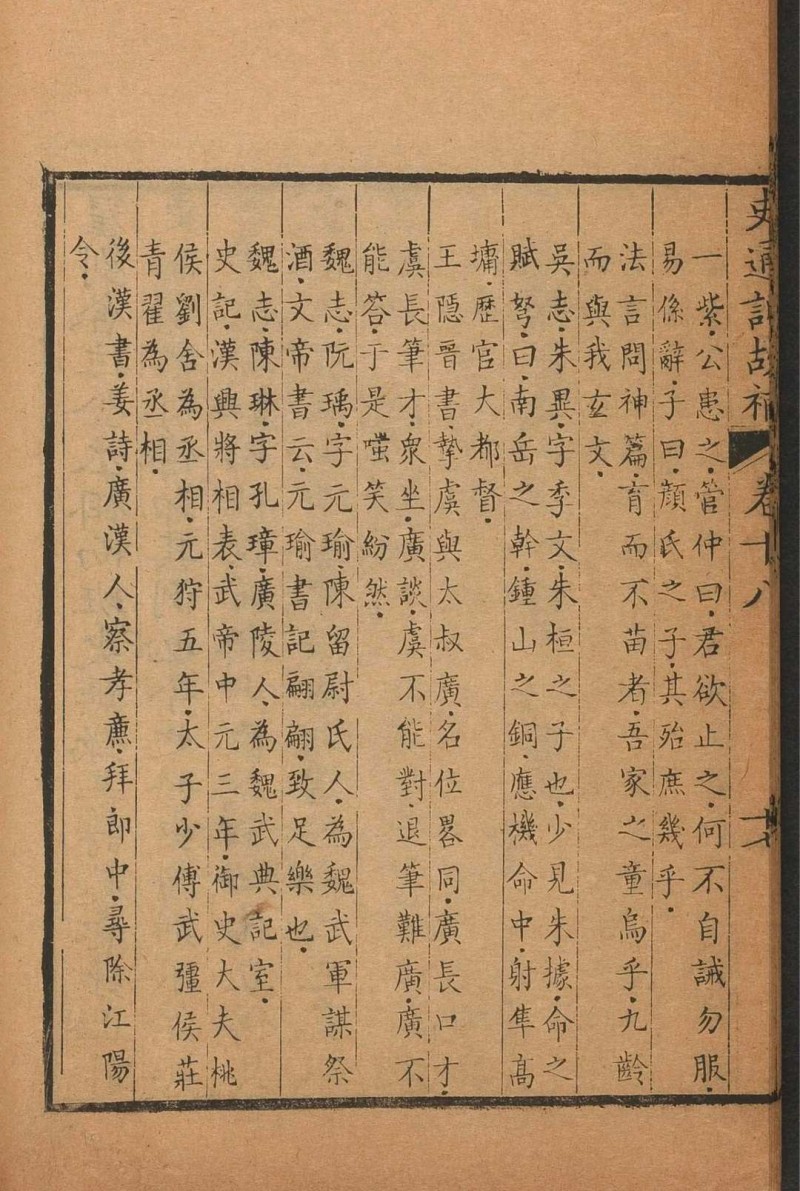 史通訓故補 卷十八 十六
一紫.公患之.管仲曰.君欲止之.何不自誡勿服.
易係辭.子曰.顔氏之子.其殆庶幾乎.
法言問神篇.育而不苗者.吾家之童烏乎.九齡
而與我玄文.
吳志.朱異.字季文.朱桓之子也.少見朱據.命之
賦弩.曰.南岳之幹.鍾山之銅.應機命中.射隼高
墉.歷官大都督.
王隱晉書.摯虞與太叔廣.名位畧同.廣長口才.
虞長筆才.衆坐.廣談.虞不能對.退筆難廣.廣不
能答.于是嗤笑紛然.
魏志.阮瑀.字元瑜.陳留尉氏人.為魏武軍謀祭
酒.文帝書云.元瑜書記翩翩.致足樂也.
魏志.陳琳.字孔璋.廣陵人.為魏武典記室.
史記.漢興將相表.武帝中元三年.御史大夫桃
侯劉舍為丞相.元狩五年.太子少傅武彊侯莊
青翟為丞相.
後漢書.姜詩.廣漢人.察孝廉.拜郎中.尋除江陽
令.